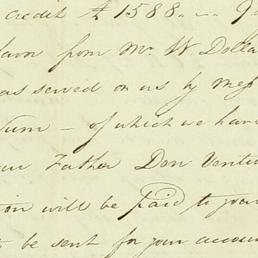 credit 1588
from Mr. W Dolla
as served on us by Mess
turn - of which we have
our Father Don Ventu
ion will be paid to your
to be sent for your accoun